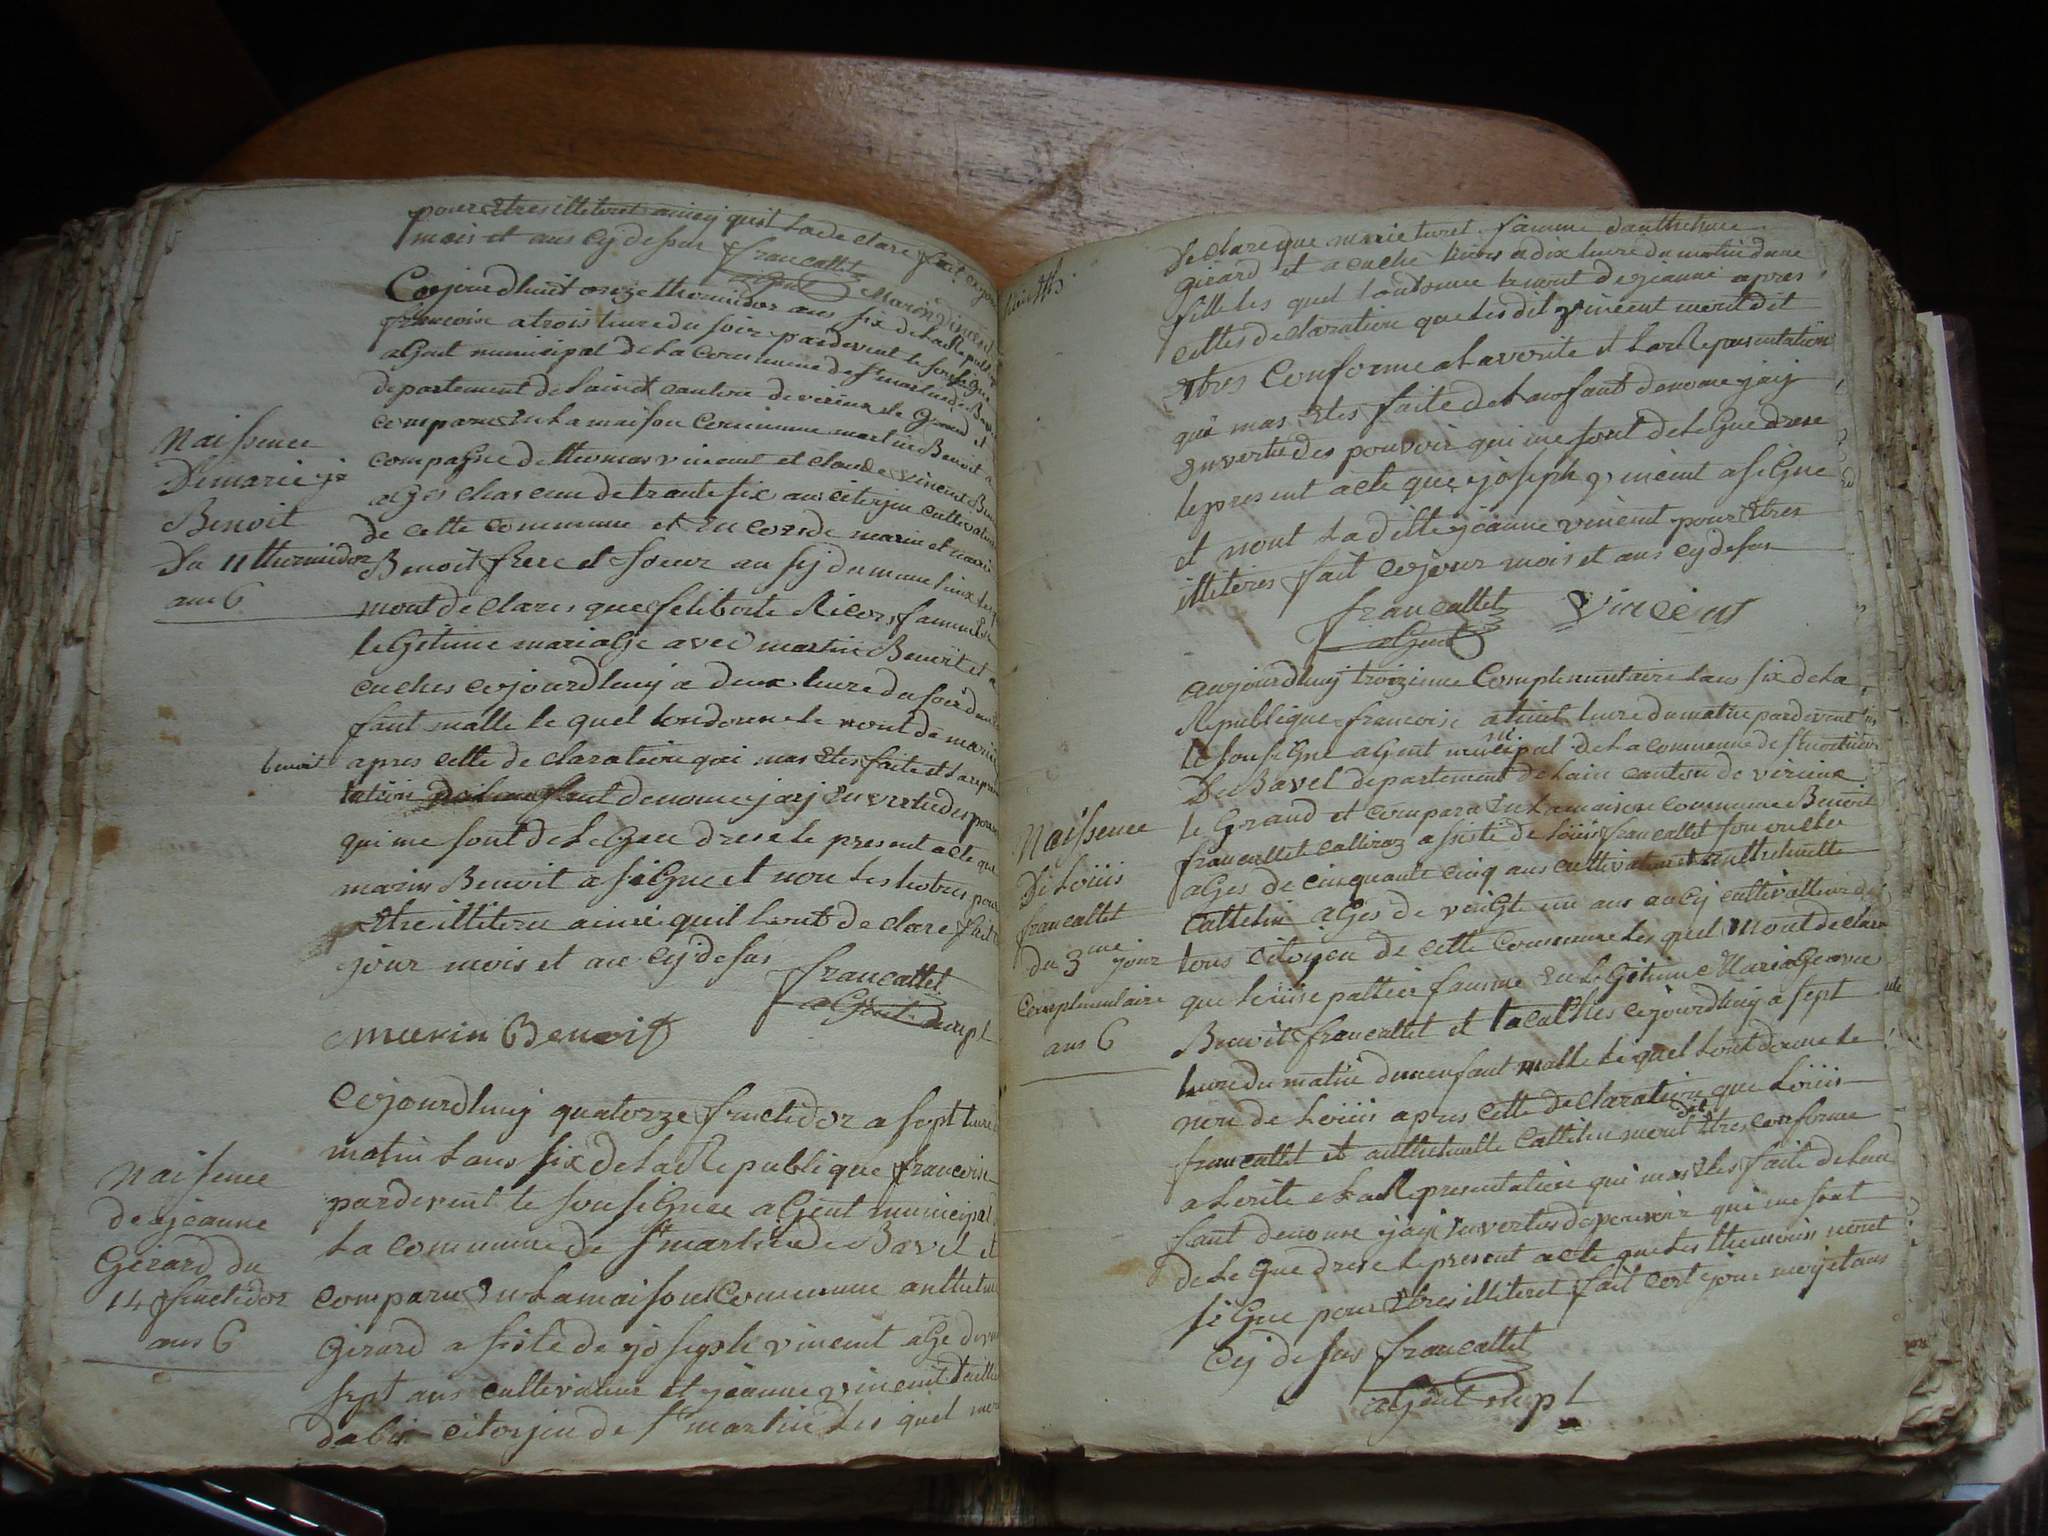 pour etres illiteret aincy quil La declare fait ce jour
mois et ans cy desus francallet
agent Marin Vincent
Cejourdhuit onze thermidor ans six de La Republique
francoise a trois heure du soir pardevent le sousigné
agent municipal de La Commune de st martin de Bavel
departement de Lain canton de virieux le grand et
comparu en La maison Commune martin Benoit
compagne de thomas vincent et claude vincent
ages chascune de trante six ans citoyin cultivateur
de cette commune et encorde marin et marie
Benoit frere et soeur
mont declares que feliberte Ricors famme
legitime mariage avec martin Benoit et a
cuches cejourdhuy a deux heure du soir
fant malle le quel londonne le nont de marie
benoit
apres cette declaration qui mas etes faite et La represen
tation de Lenffant denome jaij en vertu des pouvoir
qui me sont delegue drese le present acte que
marin Benoit a signe et non les hotres pour
etre illiteru ainsi quil lont declare fait
jour mois et an cy desus
francallet
agent mupl
marin Benoit
Naissence
De marie
Benoit
Du 11 thermidor
ans 6
cejourdhuy quatorze fructidor a sept heure
matin Lans six de La Republique francoise
pardevent le sousignee agent municipal
La commune de st martin de Bavel et
comparu en La maison Commune anthelme
Girard asisté de joseph vincent age de
sept ans cultivateur et jeanne vincent taillieu
dabis citoyin de st martin Les quel
Naisence
de jeanne
Girard du
14 fructidor
ans 6
declare que marie turet famme danthelme
girard et acuché hier a dix heure du matin dune
fille les quel londonne le nont de jeanne apres
cettes declaration que les dit vincent mont dit
etres conforme a La verite et La Representation
qui mas etes faite de Lanfant denome jaij
en vertu des pouvoir qui me sont delegue drese
le present acte que joseph vincent a signe
et nont La ditte jeanne vincent pour etres
illiteres fait cejour mois et ans cy desus
francallet Vincent
agent
aujourdhuy troizieme Complementaire Lans six de La
Republique francoise a huit heure du matin pardevent
le sousigne agent municipal de La commune de st martin
De Bavel departement de Lain canton de virieux
le Grand et comparu en La maison commune Benoit
francallet calliraz asisté de Loüis francallet son oncle
ages de cinquante cinq ans cultivateur et anthelmette
Cattelin ages de vingt un ans aucy cultivatteur
tous citoyen de cette Commune les quel mont declare
que Loüise paltier famme en Legitime Mariage avec
Benoit francallet et lacuches cejourdhuy a sept
heure du matin dun enfant malle le quel lont donne le
non de Loüis apres cette declaration que Loüis
francallet et anthelmette Cattelin mont dit etres conforme
a Lerite et La Representation qui mas etes faite de Lan
fant denome jaij en vertus de pouvoir qui me sont
delegue drese le present acte que les themoin nont
signe pour etres illiteret fait cest jour moy et ans
cy desus francallet
agent mupl
Naissence
De Loüis
francallet
du 3me jour
Complementaire
ans 6